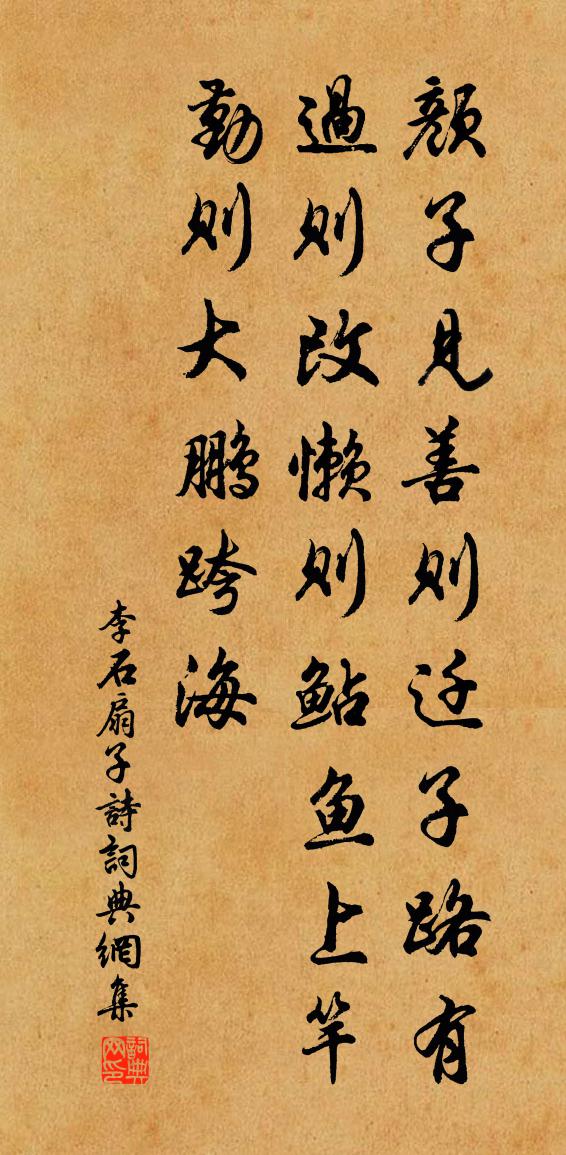 颜子见善则迁子路有
過则改懒则鲇鱼上竿
勤则大鹏跨海
李石扇子詩詞典網集
詞典网印